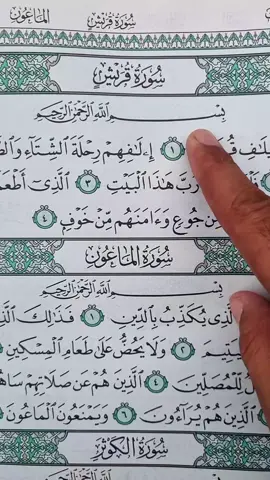 الماعون سورة قريش
سورة قريش
بسم الله الرحمن الرحيم
۝١ إۦلٰفهم رحلة الشتآء
رب هٰذا البيت ۝٣ الذىٓ
من جوع وءامنهم من خوف ۝٤
سورة الماعون
بسم الله الرحمن الرحيم
يكذب بالدين ۝١ فذٰلك
۝٢ ولا يحض علىٰ طعام المسكين
للمصلين ۝٤ الذين هم عن صلاتهم
الذين هم يرآءون ۝٦ ويمنعون الماعون
سورة الكوثر